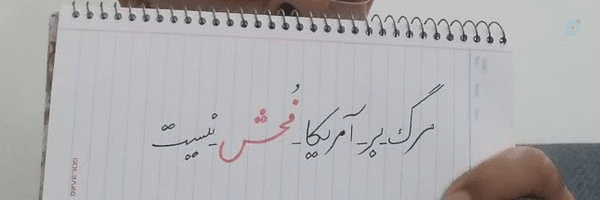 مرگ بر آمریکا فُحش نیست